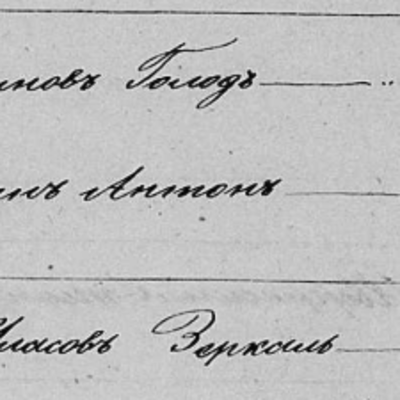 иновъ Голодъ
инъ Антонъ
Уласовъ Зеркаль